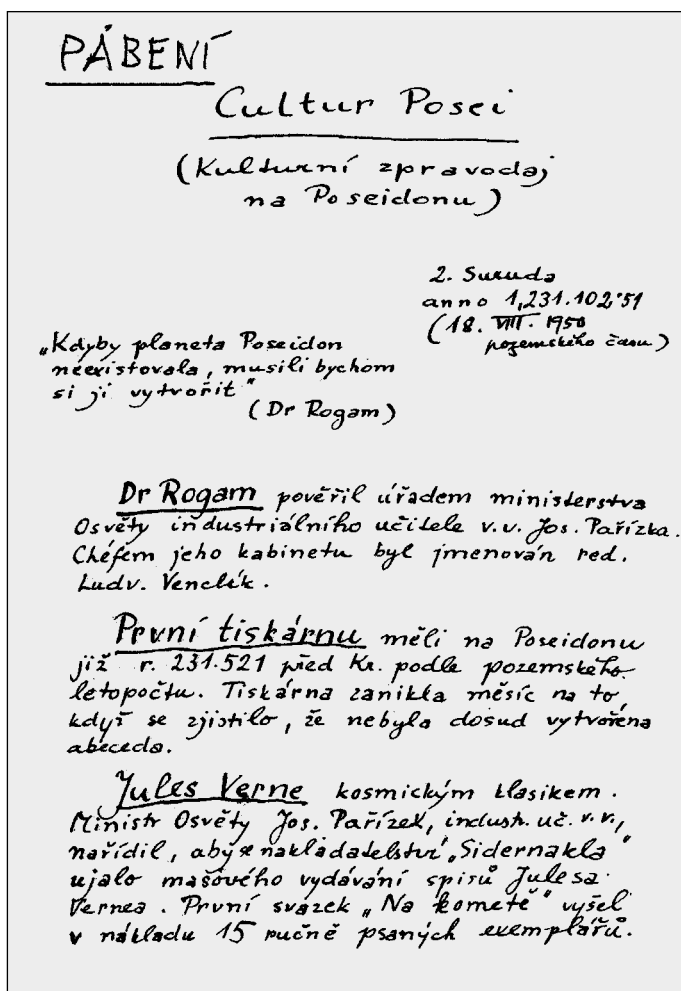 PÁBENÍ
Cultur Posei
(Kulturní zpravodaj
na Poseidonu)
2. Suruda
anno 1,231.102·51
(18. VIII. 1950
pozemského času)
„Kdyby planeta Poseidon
neexistovala, musili bychom
si ji vytvořit"
(Dr Rogam)
Dr Rogam pověřil úřadem ministerstva
Osvěty industriálního učitele v.v. Jos. Pařízka.
Chéfem jeho kabinetu byl jmenován red.
Ludv. Venclík.
První tiskárnu měli na Poseidonu
již r. 231.521 před Kr. podle pozemského
letopočtu. Tiskárna zanikla měsíc na to,
když se zjistilo, že nebyla dosud vytvořena
abeceda.
Jules Verne kosmickým klasikem.
Ministr Osvěty Jos. Pařízek, industr. uč. v.v.,
nařídil, aby se nakladatelství „Sidernakla"
ujalo masového vydávání spisů Julesa
Vernea. První svazek „Na kometě" vyšel
v nákladu 15 ručně psaných exemplářů.